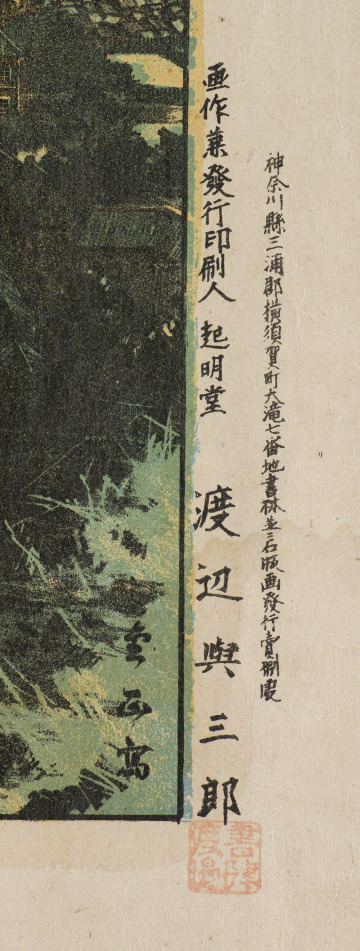 神奈川縣三浦郡横須賀町大滝七番地書林並ニ石版画發行賣捌處
画作兼發行印刷人 起明堂 渡辺與三郎